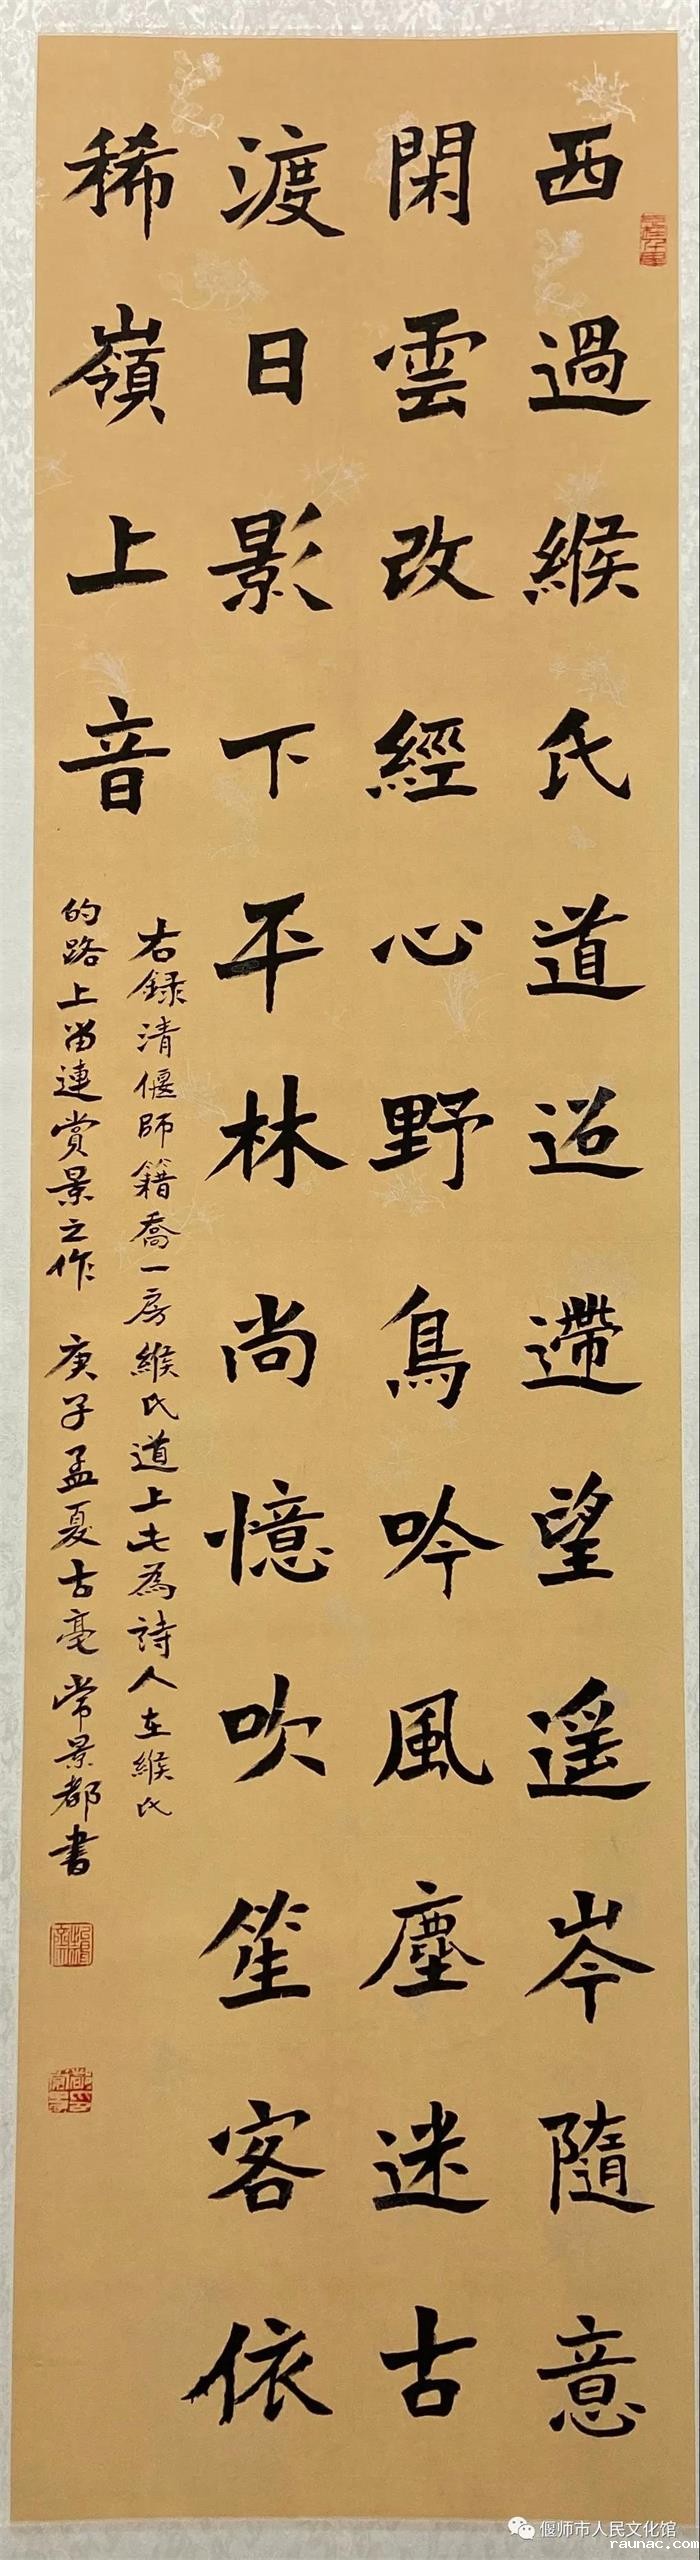 西過緱氏道迢遰望遥岑隨意
閑雲改經心野鳥吟風塵迷古
渡日影下平林尚憶吹笙客依
稀嶺上音
右録清偃師籍喬一房緱氏道上此為詩人在緱氏
的路上留連賞景之作 庚子孟夏古亳常景都書
偃师市人民文化馆
raunac.com